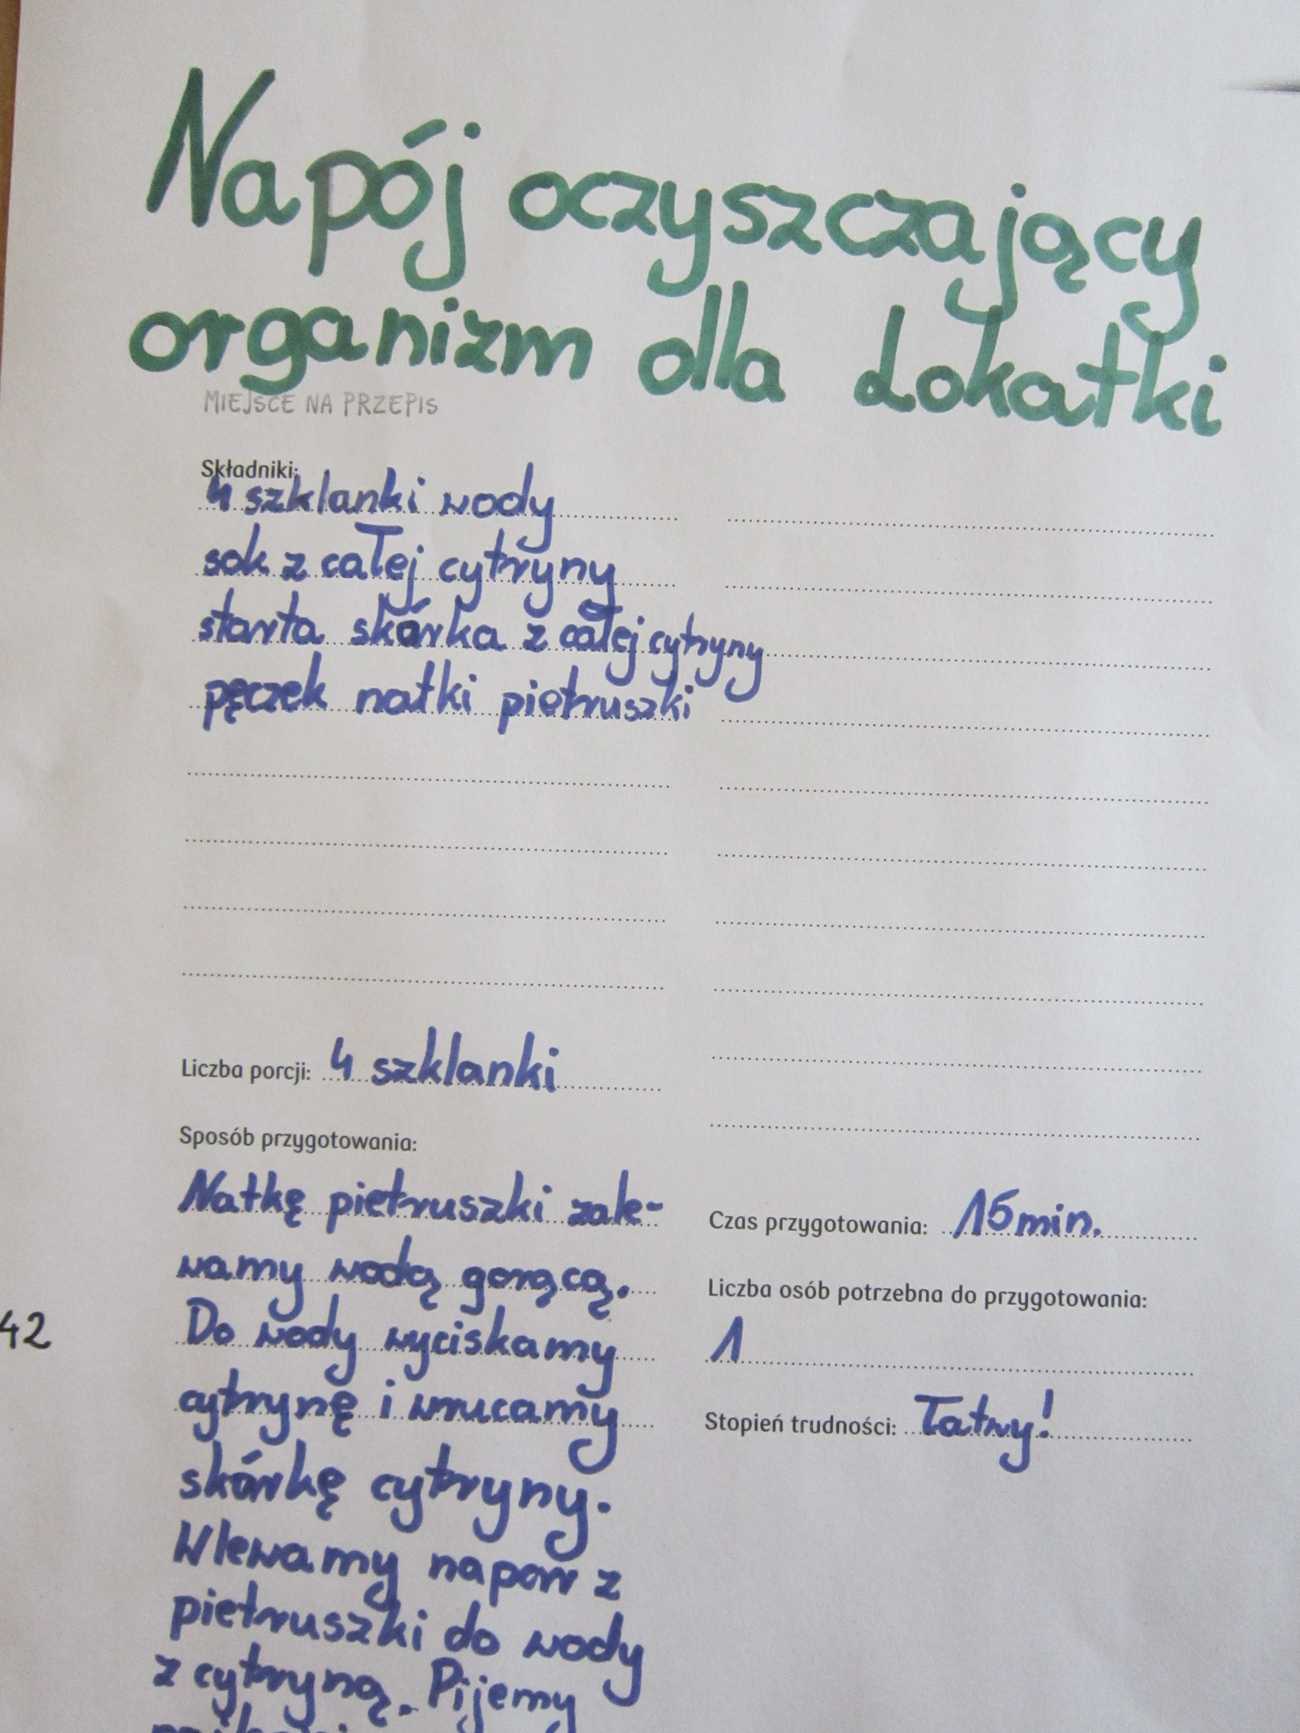 Napój oczyszczający
organizm dla Lokatki
MIEJSCE NA PRZEPIS
Składniki:
4 szklanki wody
sok z całej cytryny
starta skórka z całej cytryny
pęczek natki pietruszki
Liczba porcji: 4 szklanki
Sposób przygotowania:
Natkę pietruszki zale-
wamy wodą gorącą.
Do wody wyciskamy
cytrynę i wrucamy
skórkę cytryny.
Wlewamy napar z
pietruszki do wody
z cytryną. Pijemy
Czas przygotowania: 15 min.
Liczba osób potrzebna do przygotowania:
1
Stopień trudności: Łatwy!
42